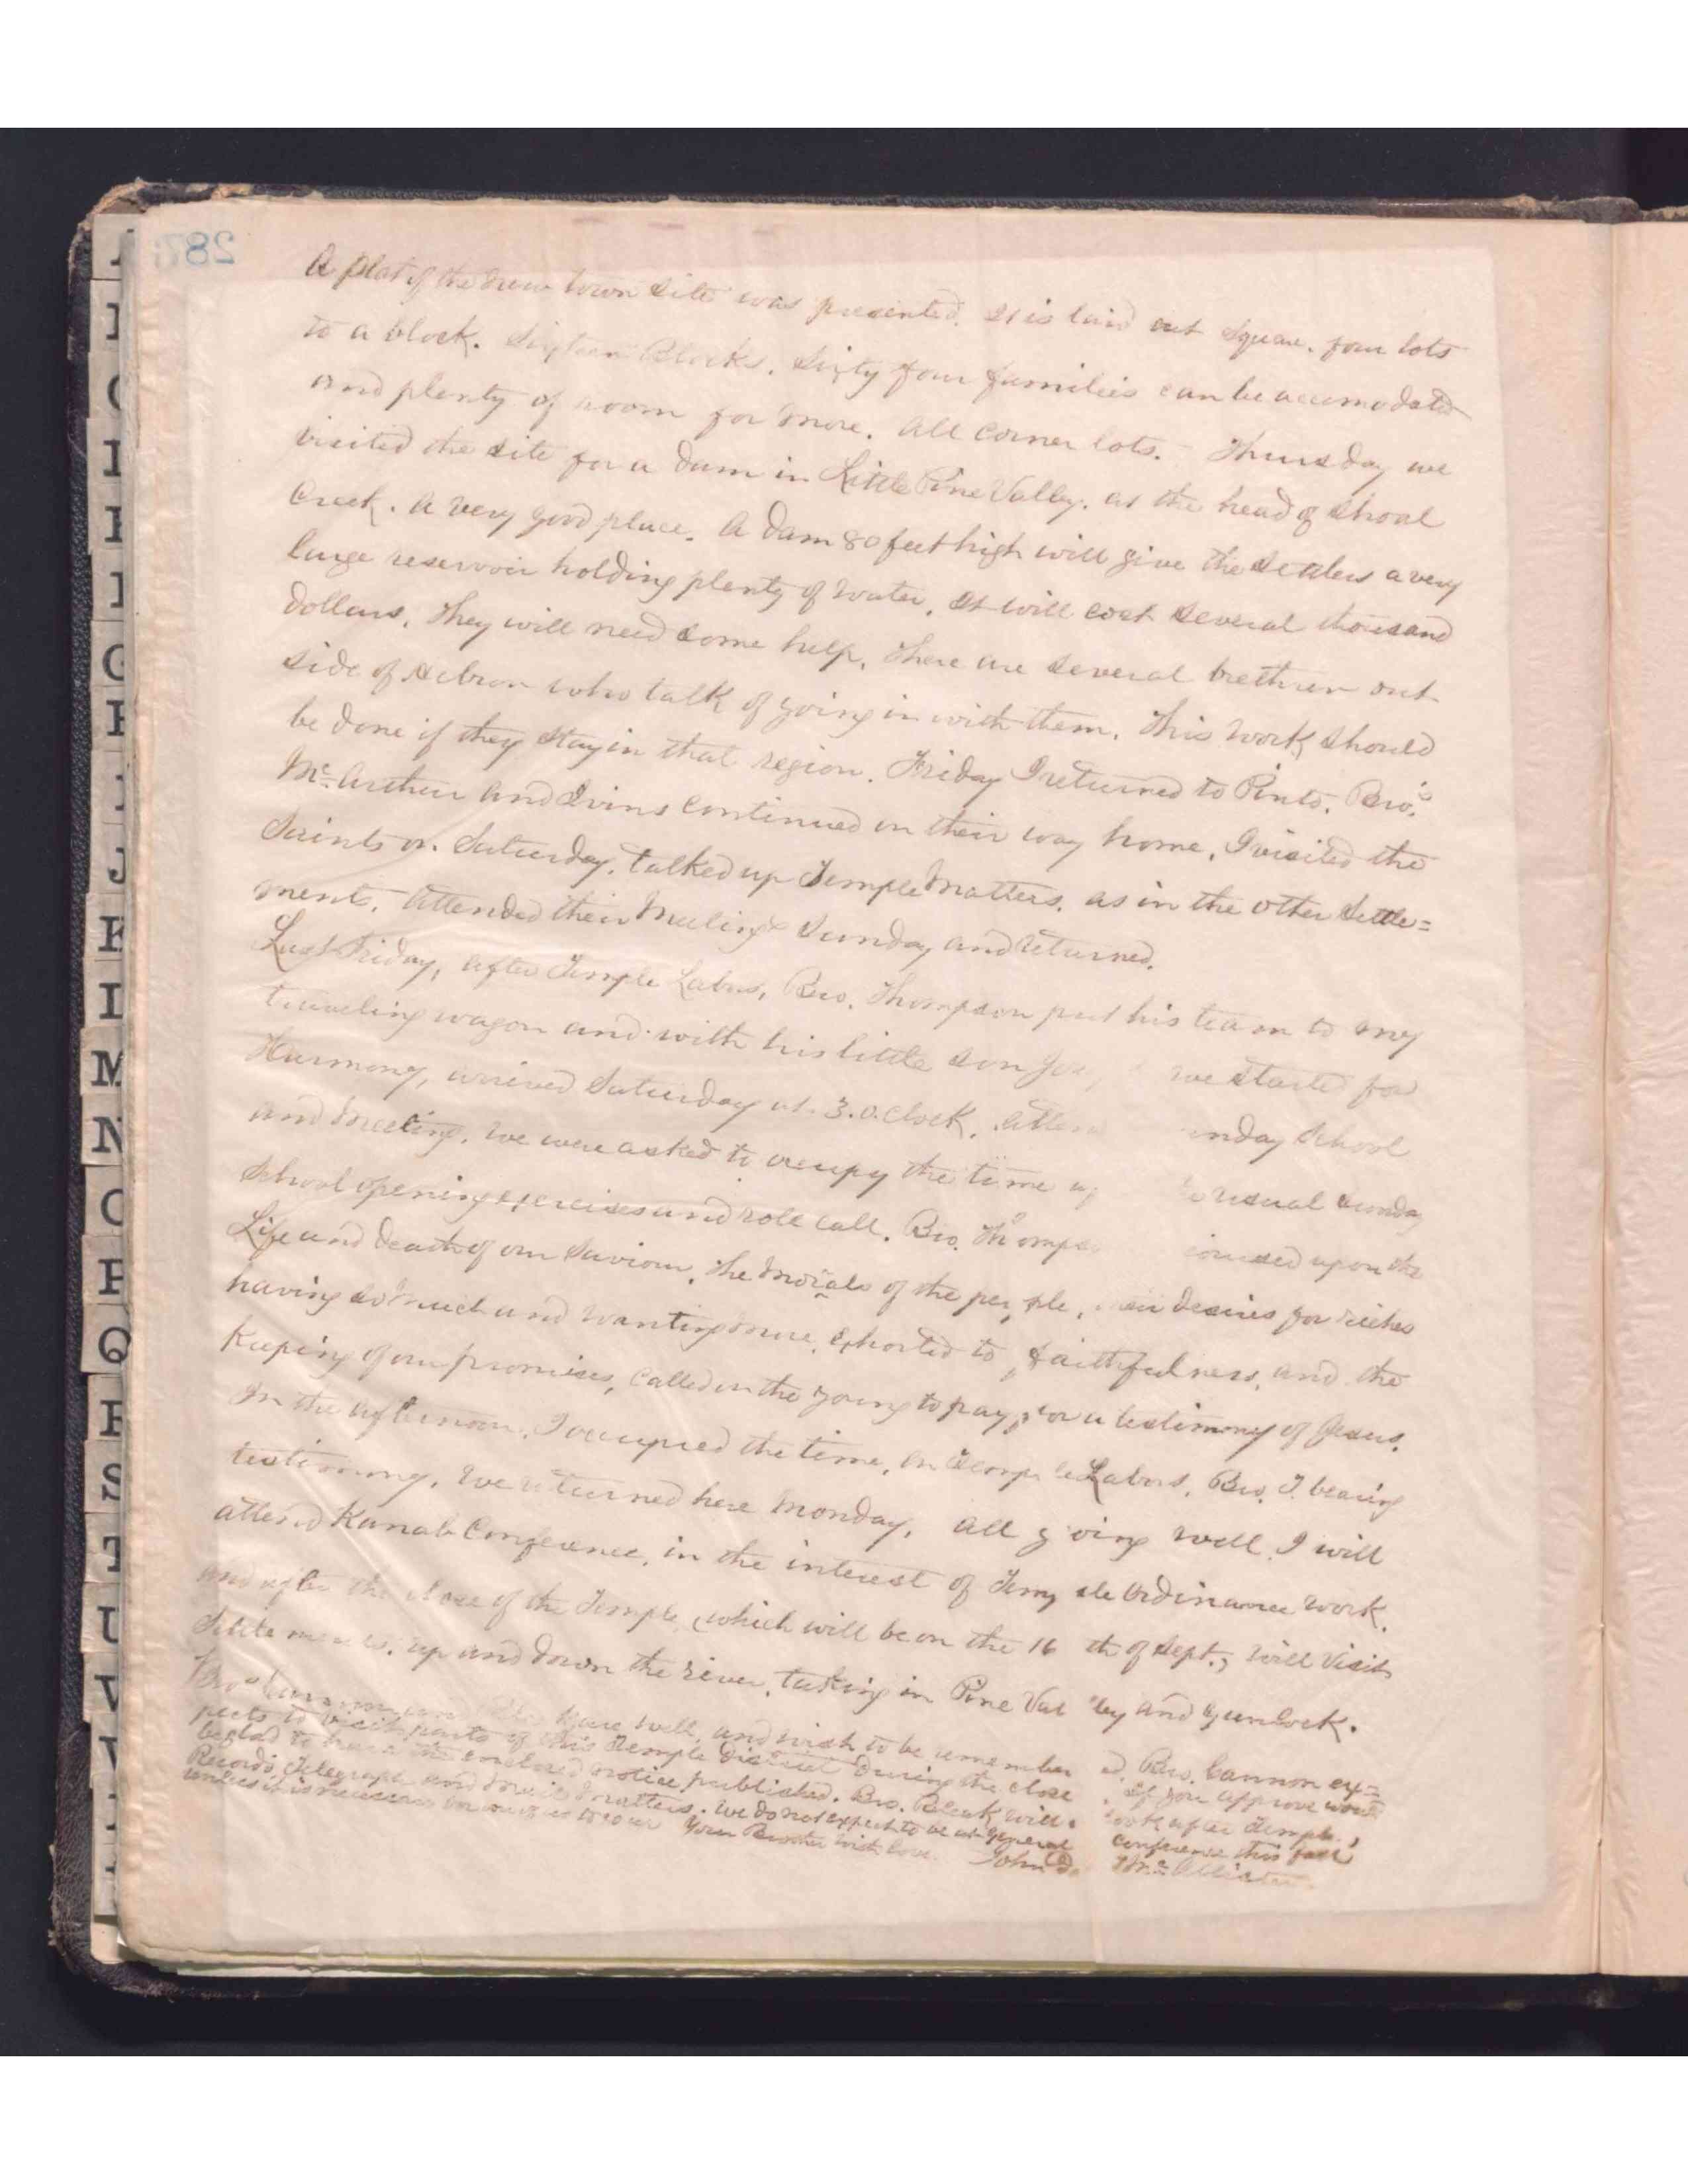 287
A plat of the new town site was presented. It is laid out square. four lots
to a block. Sixteen Blocks. Sixty four families can be accomodated
and plenty of room for more. All corner lots. - Thursday we
visited the site for a dam in Little Pine Valley. at the head of Shoal
Creek. A very good place. A dam 80 feet high will give the settlers a very
large reservoir holding plenty of water. It will cost several thousand
dollars. They will need some help. There are several brethren out
side of Hebron who talk of going in with them. This work should
be done if they stay in that region. Friday I returned to Pinto. Bro.s
Mc.Arthur and Ivins continued on their way home. I visited the
Saints on Saturday. talked up Temple Matters. as in the other Settle=
ments. Attended their Meetings Sunday and returned.
Last Friday, after Temple Labors, Bro. Thompson put his team to my
traveling wagon and with his little son we started for
Harmony, arrived Saturday at 3.o.clock. unday School
and Meeting. we were asked to occupy the time usual Sunday
School opening exercises and role call. Bro. Thomps upon the
Life and death of our Saviour. The Morals of the people, their desires for riches
having so much and wanting more. exhorted to faithfulness, and the
Keeping of our promises, called on the young to pay for a testimony of Jesus.
In the afternoon. I occupied the time, on Temple Labors. Bro. T. bearing
testimony. We returned here Monday. All going well. I will
attend Kanab Conference, in the interest of Temple Ordinance work.
and after the close of the Temple, which will be on the 16 th of Sept., will visit
Settlements. up and down the river, taking in Pine Valley and Gunlock.
Bro.s Cannon are well, and wish to be remember ed. Bro. Cannon ex=
pects to visit parts of this Temple District during the close. If you approve would
be glad to have the enclosed notice published. Bro. Bleak will look after Temple
Records, Telegraph and mail matters. We do not expect to be at general conference this fall
unless it is necessary Your Brother with love. John D. T. Mc.Allister